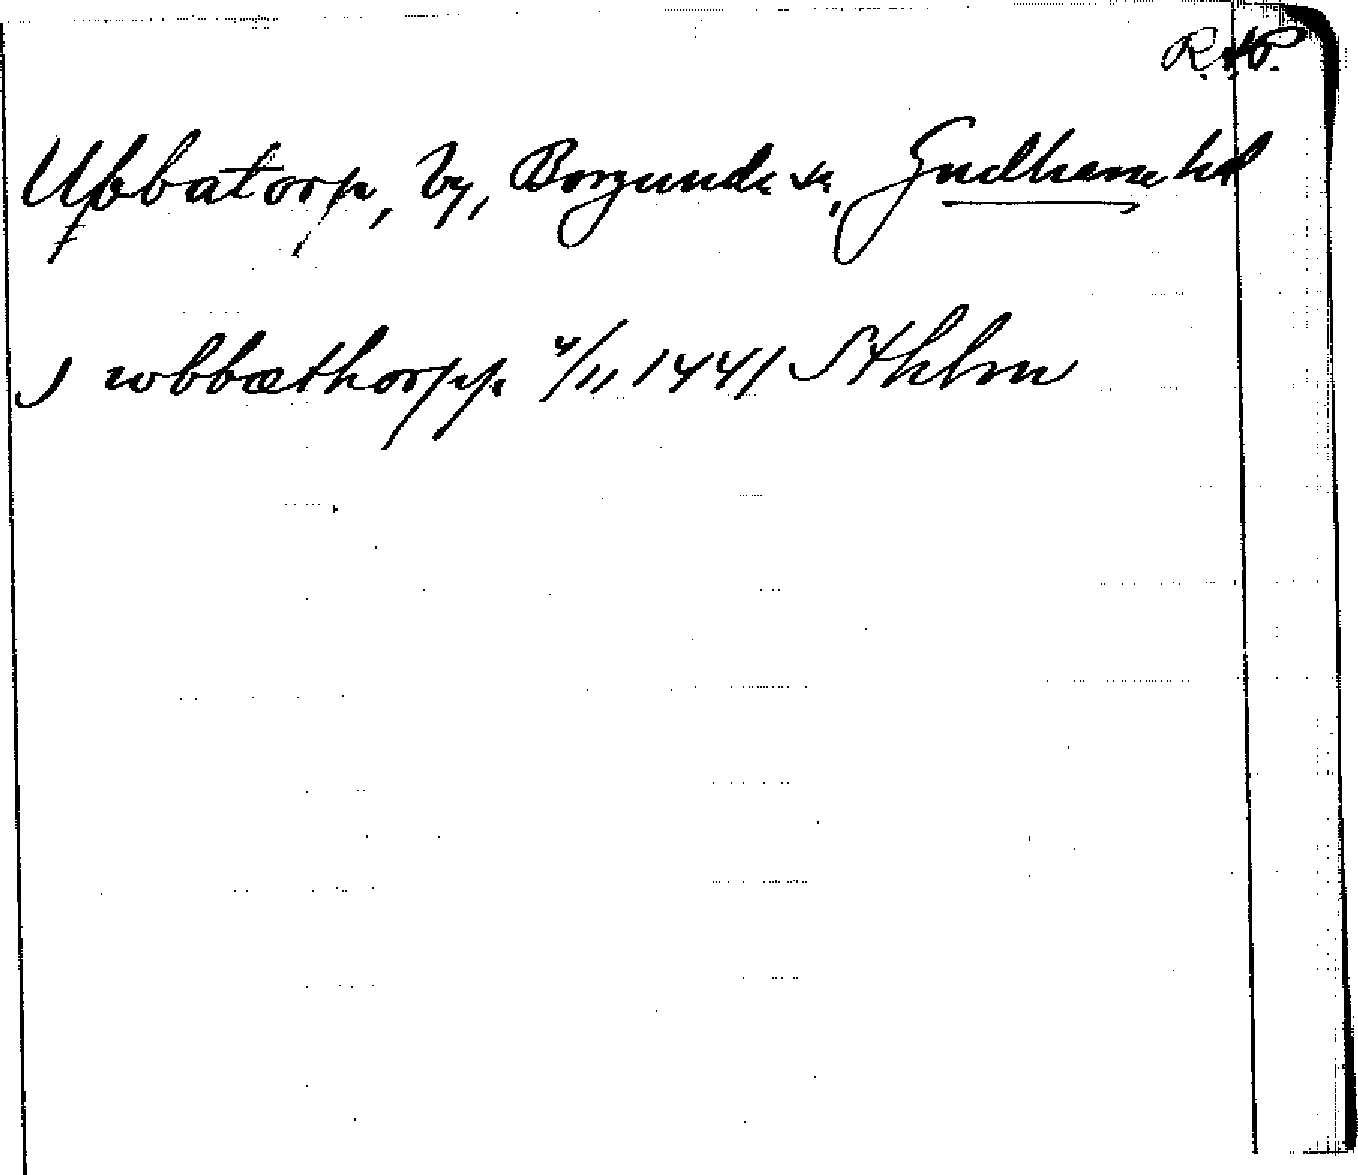 R.A.P.
Ubbatorp, by, Borgunda sn, Gudhems hd
J wbbæthorpp 4/11 1441 Sthlm